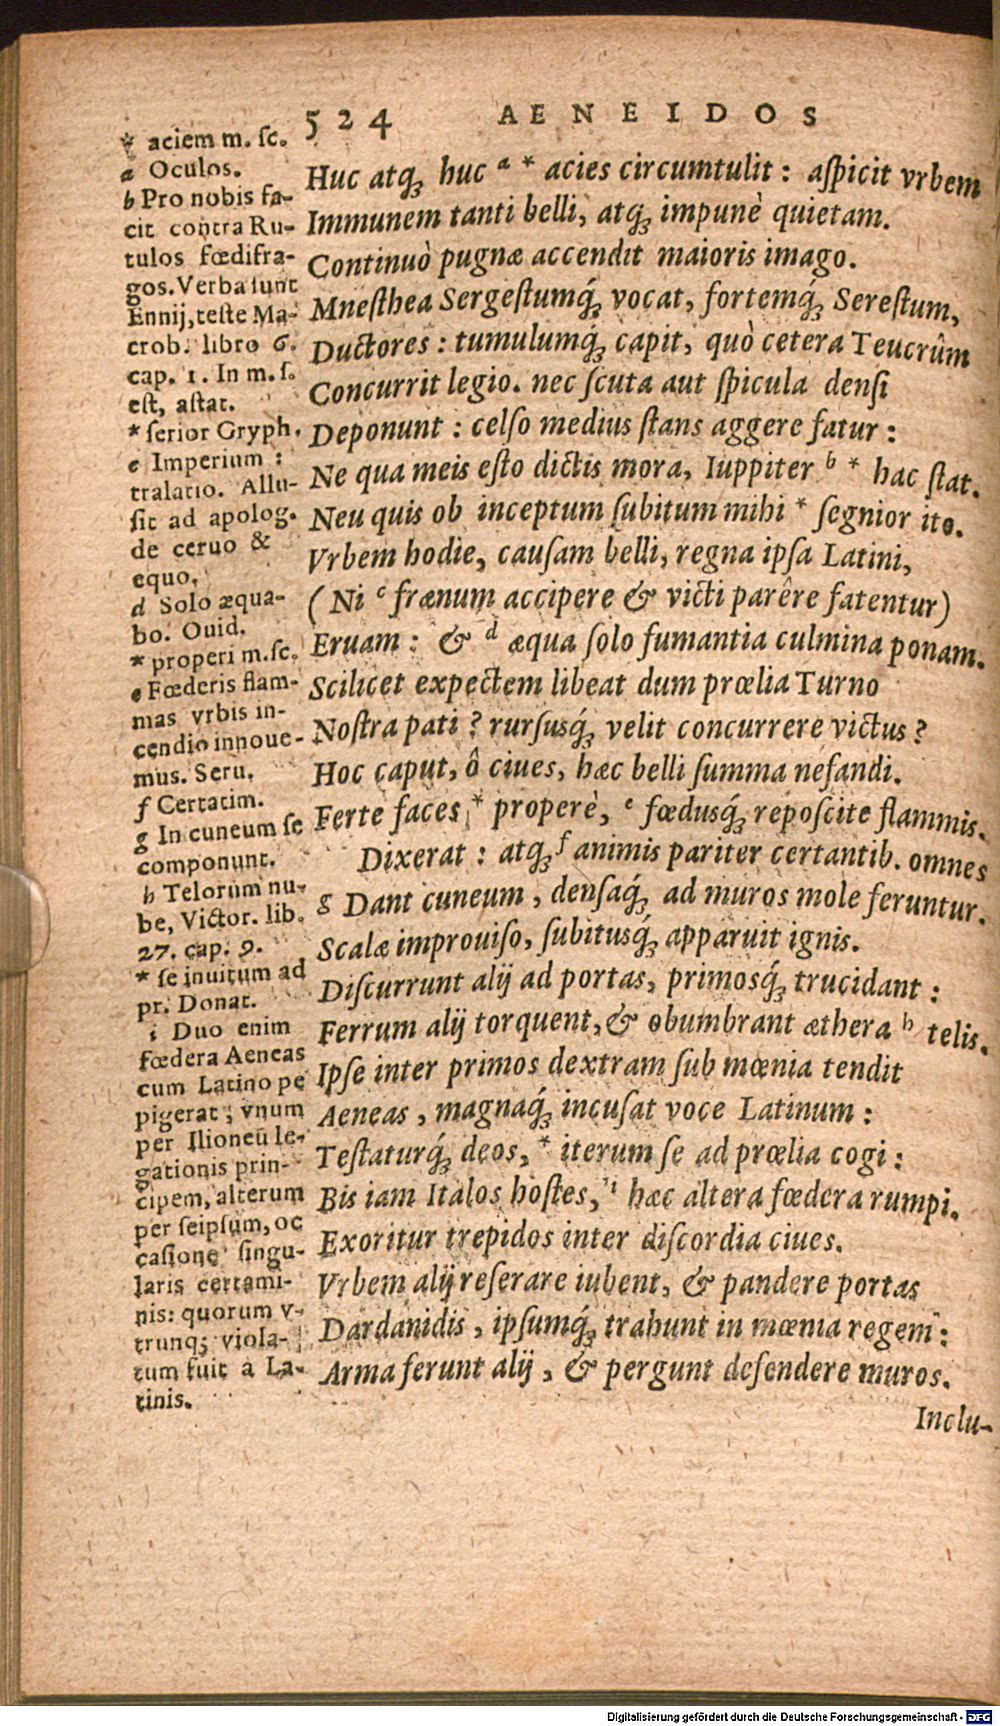 524 AENEIDOS
* aciem m. ſc.
a Oculos.
b Pro nobis fa-
cit contra Ru-
tulos fœdifra-
gos. Verba ſunt
Ennij, teſte Ma-
crob. libro 6.
cap. 1. In m. ſ.
eſt, aſtat.
* ſerior Gryph.
c Imperium:
tralatio. Allu-
ſit ad apolog.
de ceruo &
equo.
d Solo æqua-
bo. Ouid.
* properi m. ſc.
e Fœderis flam-
mas vrbis in-
cendio innoue-
mus. Seru.
f Certatim.
g In cuneum ſe
componunt.
h Telorum nu-
be, Victor. lib.
27. cap. 9.
* ſe inuitum ad
pr. Donat.
i Duo enim
fœdera Aeneas
cum Latino pe
pigerat; vnum
per Ilioneū le-
gationis prin-
cipem, alterum
per ſeipſum, oc
caſione ſingu-
laris certami-
nis: quorum v-
trunq; viola-
tum fuit à La-
tinis.
Huc atq; huc a * acies circumtulit: aſpicit vrbem
Immunem tanti belli, atq; impunè quietam.
Continuò pugnæ accendit maioris imago.
Mneſthea Sergeſtumq́; vocat, fortemq́; Sereſtum,
Ductores: tumulumq́; capit, quò cetera Teucrûm
Concurrit legio. nec ſcuta aut ſpicula denſi
Deponunt: celſo medius ſtans aggere fatur:
Ne qua meis eſto dictis mora, Iuppiter b * hac ſtat.
Neu quis ob inceptum ſubitum mihi * ſegnior ito.
Vrbem hodie, cauſam belli, regna ipſa Latini,
(Ni c frænum accipere & victi parêre fatentur)
Eruam: & d æqua ſolo fumantia culmina ponam.
Scilicet expectem libeat dum prœlia Turno
Noſtra pati? rurſusq́; velit concurrere victus?
Hoc caput, ô ciues, hæc belli ſumma nefandi.
Ferte faces * properè, e fœdusq́; repoſcite flammis.
Dixerat: atq; f animis pariter certantib. omnes
g Dant cuneum, denſaq́; ad muros mole feruntur.
Scalæ improuiſo, ſubitusq́; apparuit ignis.
Diſcurrunt alij ad portas, primosq́; trucidant:
Ferrum alij torquent, & obumbrant æthera h telis.
Ipſe inter primos dextram ſub mœnia tendit
Aeneas, magnaq́; incuſat voce Latinum:
Teſtaturq́; deos, * iterum ſe ad prœlia cogi:
Bis iam Italos hoſtes, i hæc altera fœdera rumpi.
Exoritur trepidos inter diſcordia ciues.
Vrbem alij reſerare iubent, & pandere portas
Dardanidis, ipſumq́; trahunt in mœnia regem:
Arma ferunt alij, & pergunt defendere muros.
Inclu-
Digitalisierung gefördert durch die Deutsche Forschungsgemeinschaft - DFG